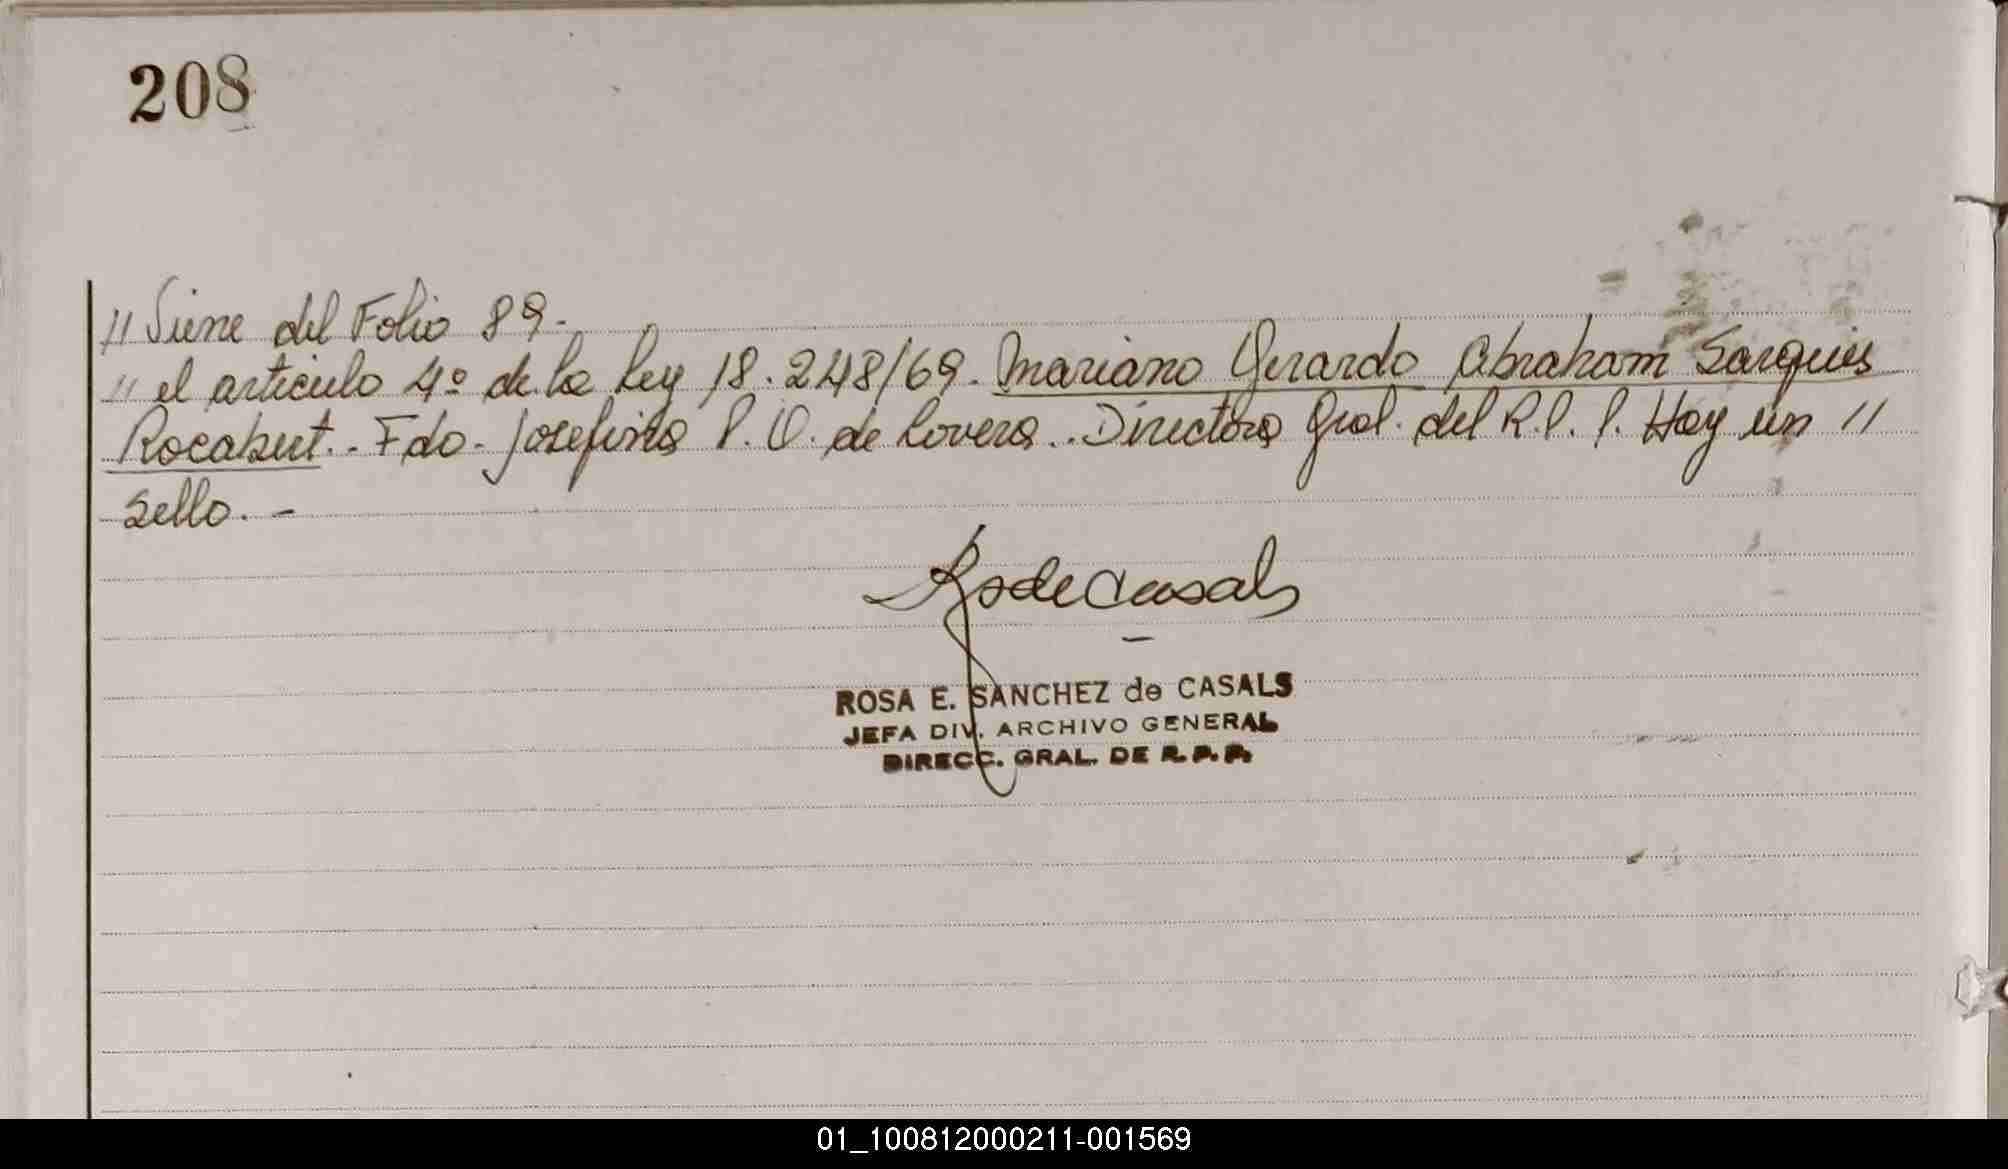 208
// Viene del Folio 89.-
// el articulo 4º de la Ley 18.248/69. Mariano Gerardo Abraham Sarquis
Rocabert.- Fdo- Josefina P. O. de Lovera.. Directora Gral. del R.P.P. Hay un //
sello. -
RsdeCasals
ROSA E. SANCHEZ de CASALS
JEFA DIV. ARCHIVO GENERAL
DIRECC. GRAL. DE R.P.P.
01_100812000211-001569